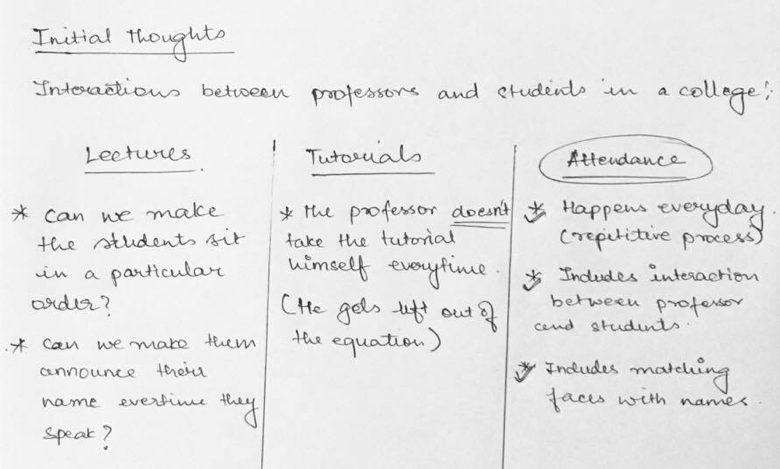 Initial thoughts
Interactions between professors and students in a college:
Lectures
* Can we make
the students sit
in a particular
order?
* Can we make them
announce their
name evertime they
speak?
Tutorials
* The professor doesn't
take the tutorial
himself everytime.
(He gets left out of
the equation)
Attendance
* Happens everyday.
(repititive process)
* Includes interaction
between professor
and students.
* Includes matching
faces with names.